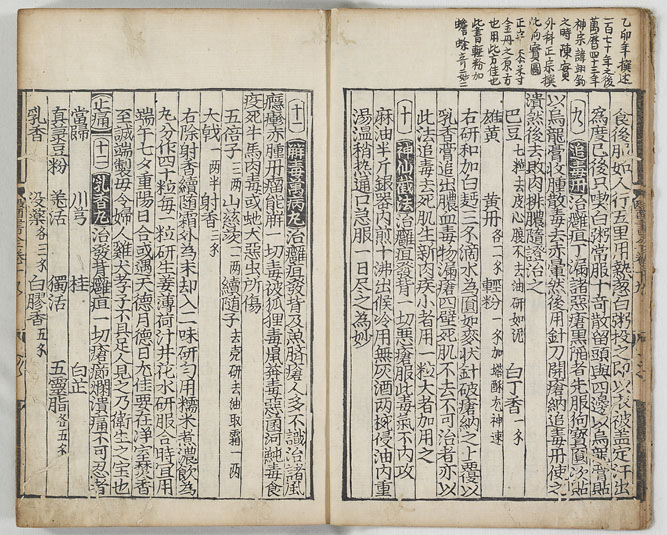 乙卯年撰述
一百七十年之後
萬曆四十三年
神宗諱翊鈞
之時陳實
外科正宗撰
金丹之原方
也用此方佳也
此書輕粉加
蟾蜍奇
食後卧如人行五里用熱葱白粥投之即以衣被盖定汗出
爲度已後只喫白粥常服十奇散留頭與四邊以烏龍膏貼
九 追毒丹 治癰疽丁瘡諸惡瘡黑陷者先服狗寶圓汐貼
以烏龍膏收腫散毒去赤暈然後用針刀開瘡納追毒丹使之
潰然後去敗肉排膿隨證治之
巴豆 七粒去皮心膜不去油研如泥 白丁香 一錢
雄黃 黃丹 各二錢 輕粉 一錢加蟾酥尤神速
右研和加白麵三錢滴水為圓如麥狀針破瘡納之上覆以
乳香膏追出膿血毒物漏瘡四壁死肌不去不可治者亦以
此法追毒去死肌生新肉疾小者用一粒大者加用之
十 神仙截法 治癰疽發背一切惡瘡服此毒氣不內攻
麻油半斤銀器內煎十沸出候冷用無灰酒兩椀浸油內重
湯温稍熱通口急服一日尽之為妙
十一 解毒萬病丸 治癰疽發背及魚臍瘡人多不識治諸風
癮疹赤腫丹瘤能觧一切毒被狐狸毒鼠莽毒惡菌河魨毒食
疫死牛馬肉毒或虵犬惡虫所傷
五倍子 三兩 山慈菱 二兩 續随子 去克研去油取霜一兩
大戟 一兩半 射香 三錢
右除射香續随霜外為末却入二味研勻用糯米煮濃飲為
丸分作四十粒每一粒研生姜薄荷汁井花水研服合時宜用
端午七夕重陽日合或遇天德月德日尤佳要在淨室焚香
至誠端製毋令婦人雞犬孝子不具足人見之乃衛生之宝也
止痛 十二 乳香丸 治發背癰疽一切瘡癤爛潰痛不可忍者
當歸 川芎 桂 白芷
真菉豆粉 羌活 獨活 五靈脂 各五錢
乳香 没藥 各三錢 白膠香 五錢